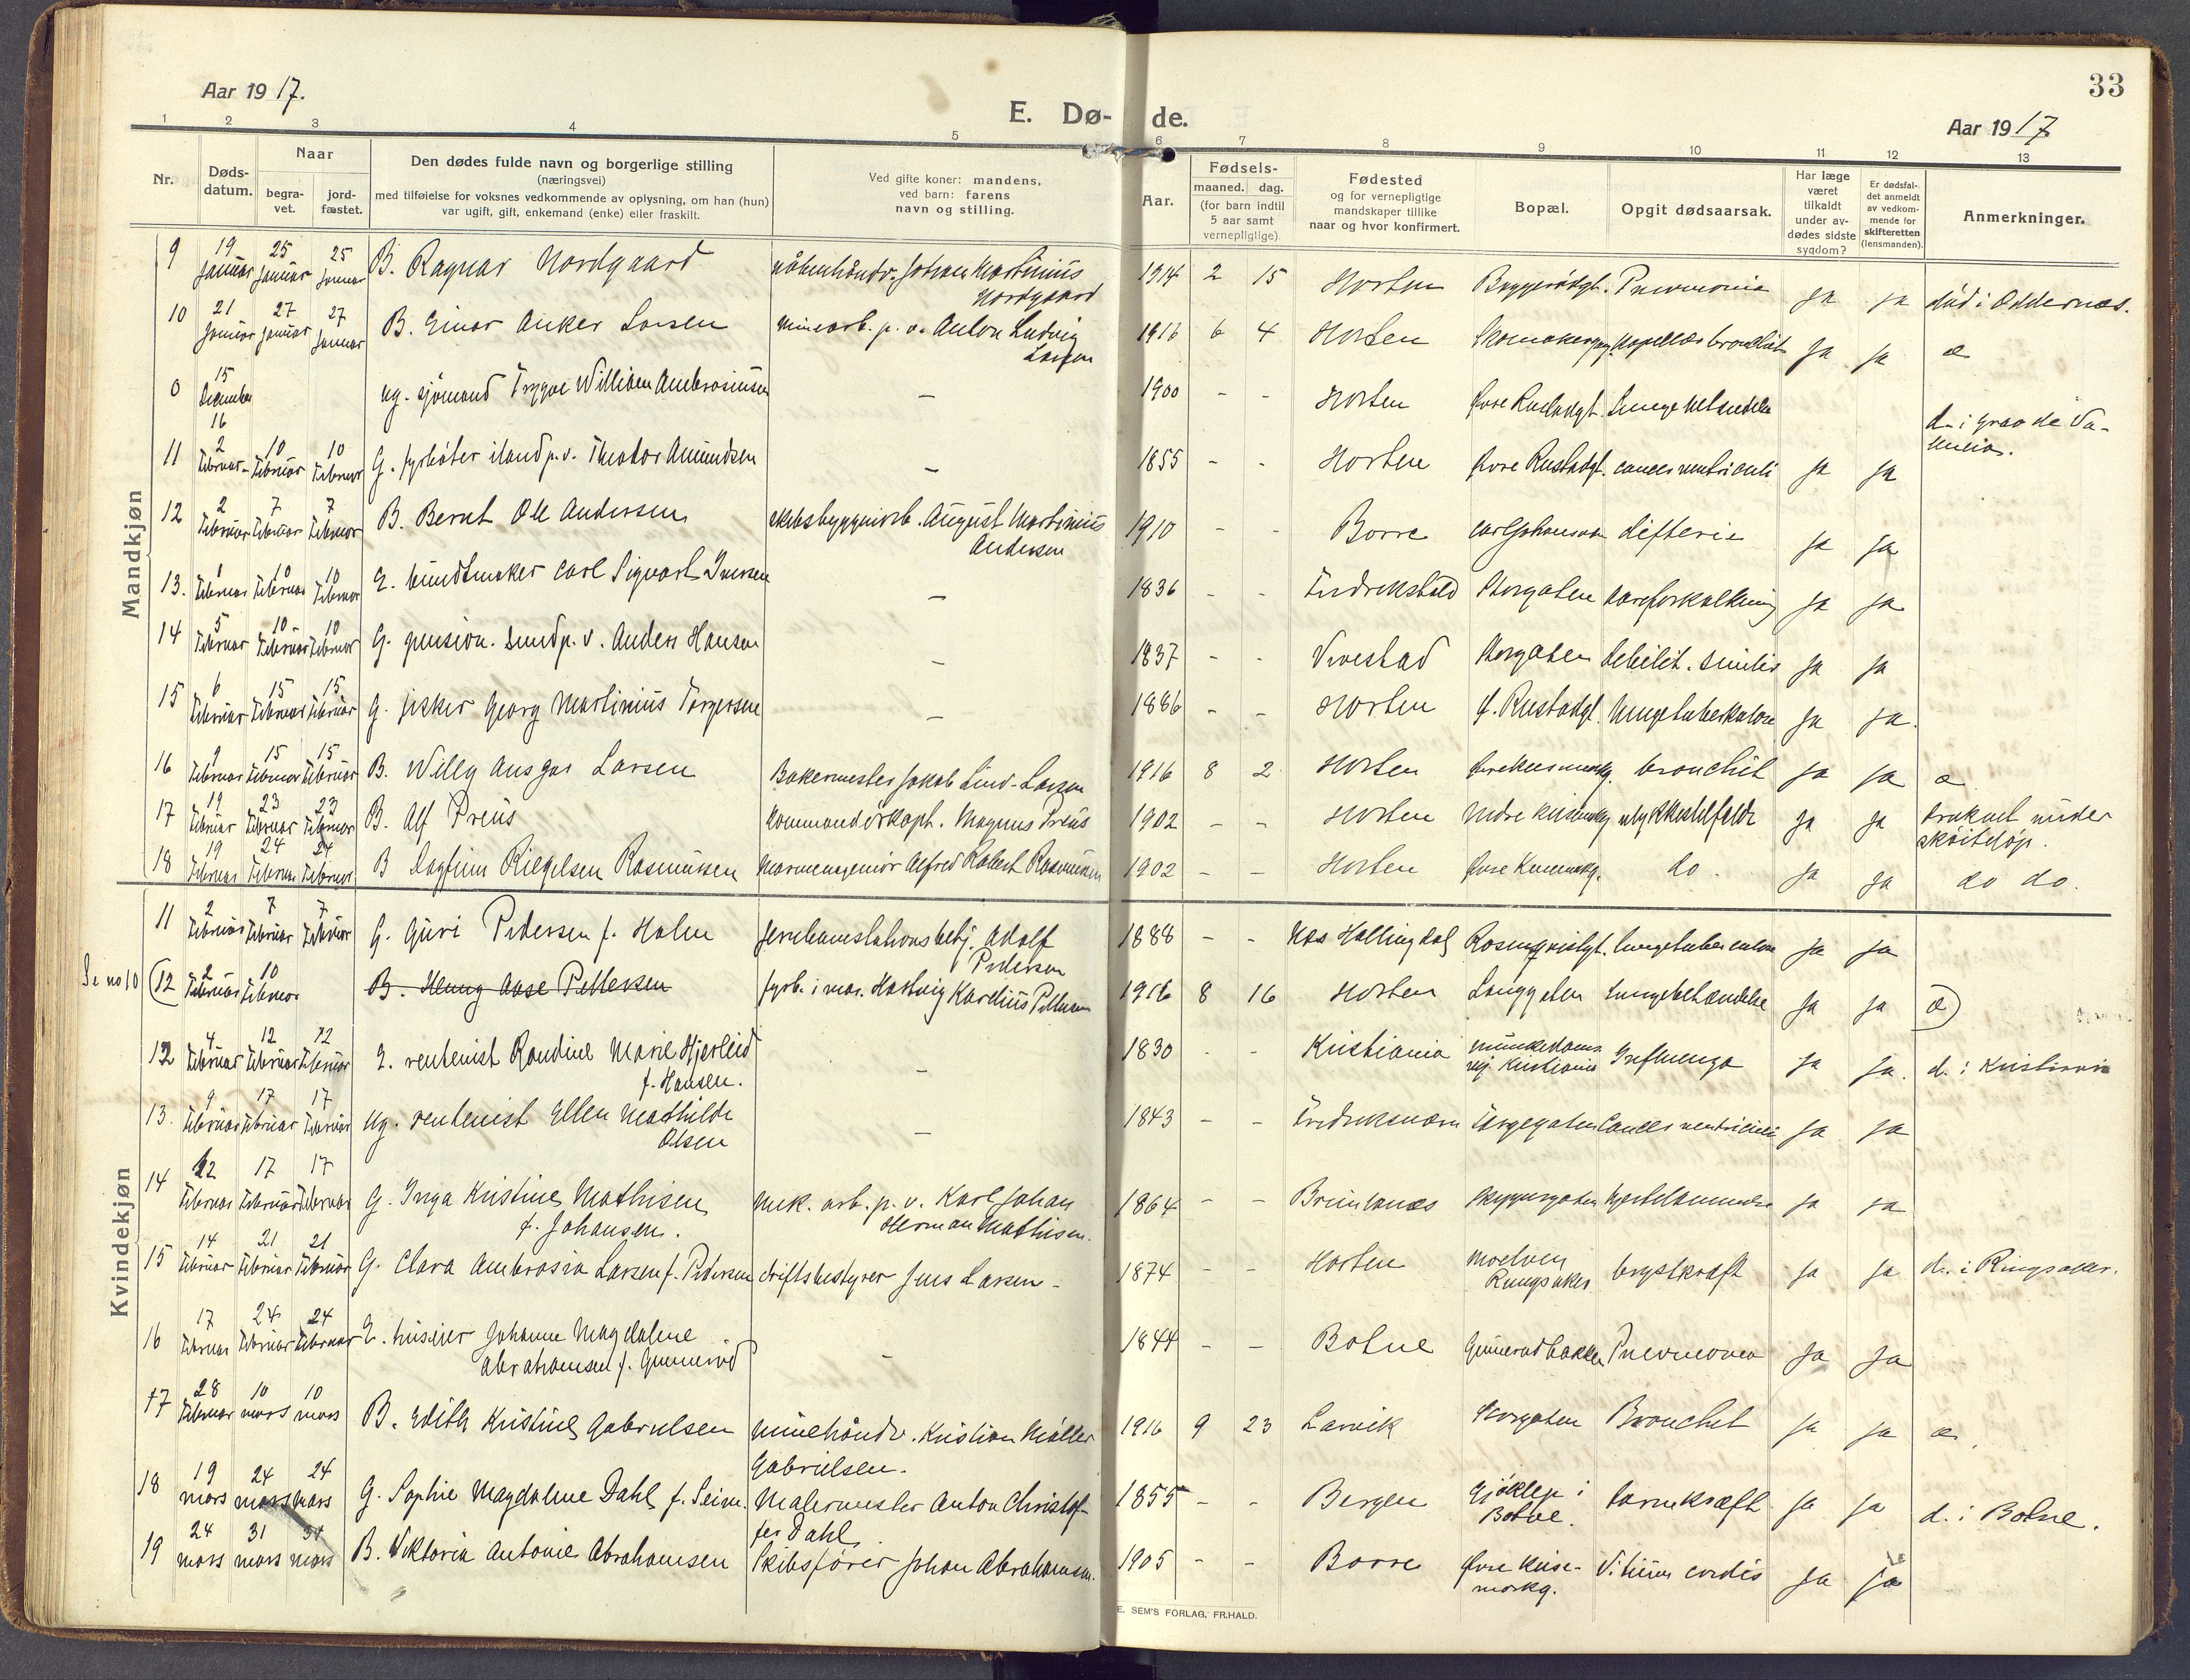 Aar 1917.
E. Dø- de.
Aar 1917
33
1 2 3 4 5 6 7 8 9 10 11 12 13
Nr.
Døds-
datum.
Naar
begra-
vet.
jord-
fæstet.
Den dødes fulde navn og borgerlige stilling
(næringsvei)
med tilføielse for voksnes vedkommende av oplysning, om han (hun)
var ugift, gift, enkemand (enke) eller fraskilt.
Ved gifte koner: mandens,
ved barn: farens
navn og stilling.
Aar.
Fødsels-
maaned. dag.
(for barn indtil
5 aar samt
vernepligtige).
Fødested
og for vernepligtige
mandskaper tillike
naar og hvor konfirmert.
Bopæl.
Opgit dødsaarsak.
Har læge
været
tilkaldt
under av-
dødes sidste
sygdom?
Er dødsfal-
det anmeldt
av vedkom-
mende for
skifteretten
(lensmanden).
Anmerkninger.
Mandkjøn
9 19 Januar 25 Januar 25 Januar B. Ragnar Nordgaard Johan Martinius Nordgaard 1914 2 15 Horten Pneumonia ja ja død i
10 21 Januar 27 Januar 27 Januar B. Einar Anker Larsen minearb. p. v. Anton Ludvig Larsen 1916 6 4 Horten ja ja æ
0 15 December 16 ug. sjömand Trygve William Ambrosiussen — 1900 - - Horten Øvre Rustadgt.
11 2 Februar 10 Februar 10 Februar G. fyrbøter p. v. Theodor Amundsen — 1855 - - Horten Øvre Rustadgt. cancer ventriculi ja ja
12 2 Februar 7 Februar 7 Februar B. Bernt Ole Andersen skibsbyggeriarb. August Martinius Andersen 1910 - - Borre difteri ja ja
13. 1 Februar 10 Februar 10 Februar E. bundtmaker Carl Sigvart Iversen — 1836 - - Fredrikstad Storgaten aareforkalkning ja ja
14 5 Februar 10 Februar 10 Februar G. pension. p. v. Anders Hansen — 1837 - - Vivestad Storgaten debilit. senilis ja ja
15 6 Februar 15 Februar 15 Februar G. fisker Georg Martinius Torgersen — 1886 - - Horten Ø. Rustadgt. lungetuberkulose ja ja.
16 9 Februar 15 Februar 15 Februar B. Willy Ansgar Larsen Bakermester Jakob Lind-Larsen 1916 8 2 Horten bronchit ja ja æ
17 19 Februar 23 Februar 23 Februar B. Alf Preus Kommandörkapt. Magnus Preus 1902 - - Horten Nedre Keisemarkg ulykkestilfælde ja ja druknet under skøiteløp.
18 19 Februar 24 Februar 24 Februar B Dagfinn Riegelsen Rasmussen Marineingeniör Alfred Robert Rasmussen 1902 - - Horten Øvre Keisemarkg. do. ja ja do do.
Kvindekjøn
11 2 Februar 7 Februar 7 Februar G. Guri Pedersen f. Holm jernbanestationsbetj. Adolf Pedersen 1888 - - Nes Hallingdal Rosenqvistgt. lungetuberculose ja ja
Se no 10 (12 2 Februar 10 Februar B. Henny Aase Pettersen fyrb. i mar. Hartvig Karelius Pettersen 1916 8 16 Horten Langgaten lungebetændelse ja ja æ)
12 4 Februar 12 Februar 12 Februar E. rentenist Randine Marie Hjerleid f. Hansen. — 1830 - - Kristiania Munkedamsvej. Kristiania Influenza ja ja. d. i Kristiania
13. 9 Februar 17 Februar 17 Februar ug. rentenist Ellen Mathilde Olsen — 1843 - - Fredriksværn Cancer ventriculi ja ja
14 12 Februar 17 Februar 17 Februar G. Inga Kristine Mathisen f. Johansen. mek. arb. p. v. Karl Johan Herman Mathisen. 1864 - - Brunlanæs hjertelammelse ja ja
15 14 Februar 21 Februar 21 Februar G. Clara Ambrosia Larsen f. Pedersen driftsbestyrer Jens Larsen - 1874 - - Horten Moelven Ringsaker brystkræft ja ja d. i Ringsaker.
16 17 Februar 24 Februar 24 Februar E. huseier Johanne Magdalene Abrahamsen f. Gunnerød — 1844 - - Botne Gunnerødbakken Pneumonia ja ja
17 28 Februar 10 mars 10 mars B. Edith Kristine Gabrielsen minehåndv. Kristian Møller Gabrielsen. 1916 9 23 Larvik Storgaten Bronchit ja ja æ.
18 19 mars 24 mars 24 mars G. Sophie Magdalene Dahl f. Seim. Malermester Anton Christoffer Dahl 1855 - - Bergen Gjøklep i Botne. tarmkræft ja ja d. i Botne.
19 24 mars 31 mars 31 mars B. Viktoria Antonie Abrahamsen Skibsfører Johan Abrahamsen. 1905 - - Borre Øvre Keisemarkg. Vitium cordis ja ja
E. SEM'S FORLAG, FR.HALD.